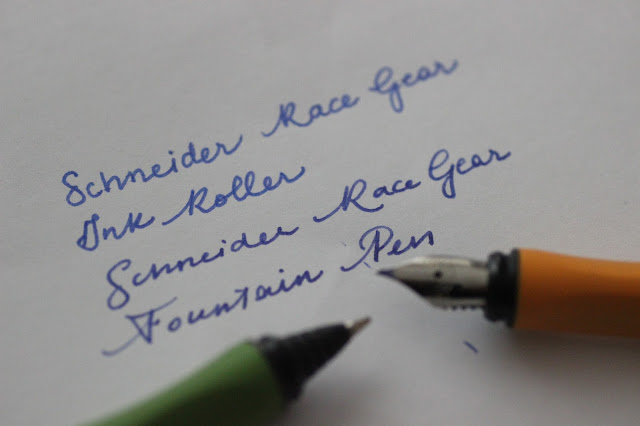 Schneider Race Gear
Ink Roller
Schneider Race Gear
Fountain Pen